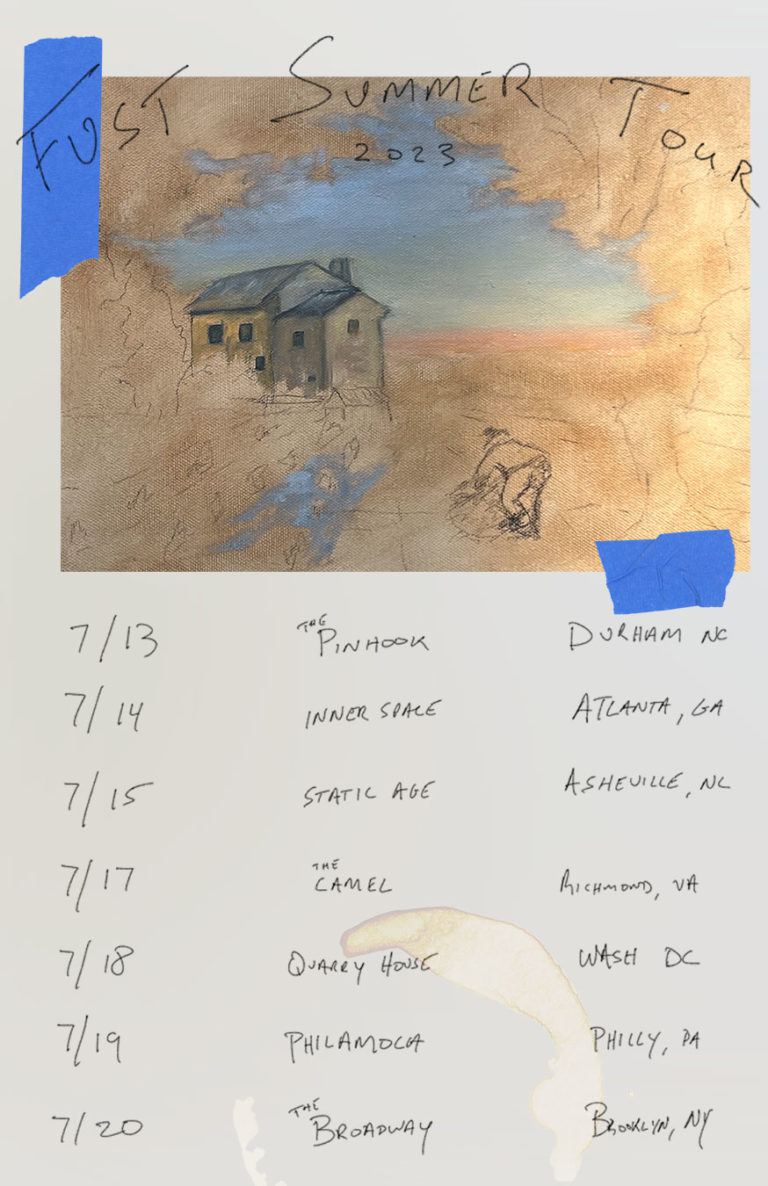 FUST SUMMER TOUR
2023
7/13 THE PINHOOK DURHAM NC
7/14 INNER SPACE ATLANTA, GA
7/15 STATIC AGE ASHEVILLE, NC
7/17 THE CAMEL RICHMOND, VA
7/18 QUARRY HOUSE WASH DC
7/19 PHILAMOCA PHILLY, PA
7/20 THE BROADWAY BROOKLYN, NY